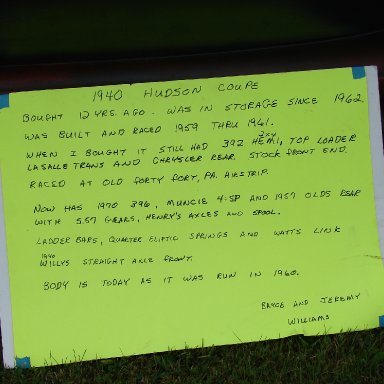 1940 HUDSON COUPE
BOUGHT 12 YRS. AGO. WAS IN STORAGE SINCE 1962.
WAS BUILT AND RACED 1959 THRU 1961.
2x4
WHEN I BOUGHT IT STILL HAD 392 HEMI, TOP LOADER
LASALLE TRANS AND CHRYSLER REAR. STOCK FRONT END.
RACED AT OLD FORTY FORT, PA. AIRSTRIP.
NOW HAS 1970 396, MUNCIE 4-SP AND 1957 OLDS REAR
WITH 5.57 GEARS, HENRY'S AXLES AND SPOOL.
LADDER BARS, QUARTER ELIPTIC SPRINGS AND WATTS LINK
1940
WILLYS STRAIGHT AXLE FRONT.
BODY IS TODAY AS IT WAS RUN IN 1960.
BRYCE AND JEREMY
WILLIAMS